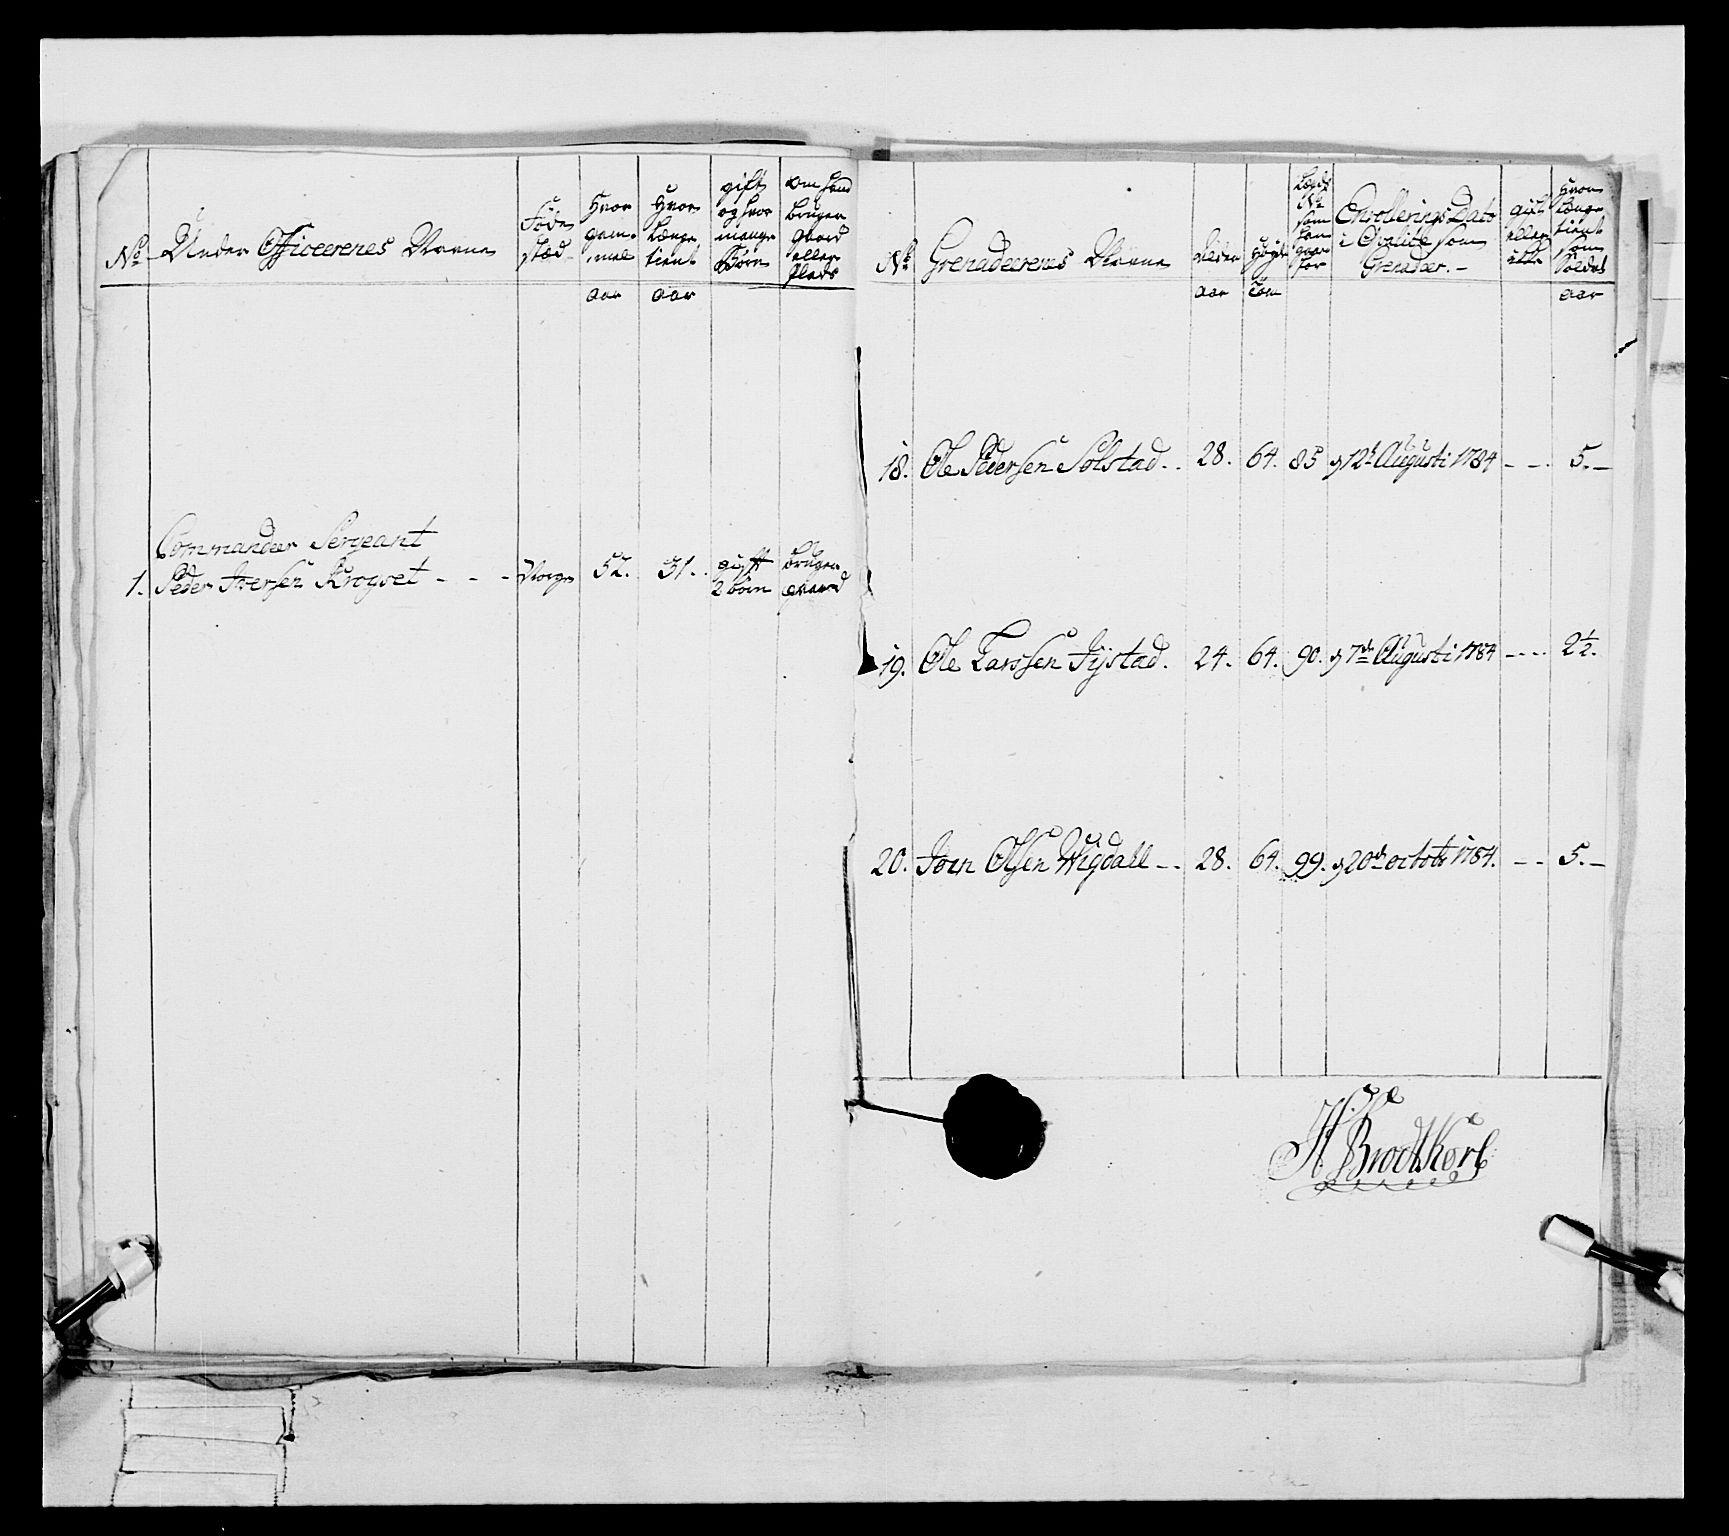 No
Under Officerenes Navne
Føde
stæd
Hvor
gam-
mel
Hvor
længe
tient
gift
og hvor
mange
Børn
om hand
bruger
gaard
eller
plads
aar
aar
Commandeer Sergeant
1. Peder Iversen Krogset - - - Norge 52. 31. gifft bruger
2 børn gaard
No
Grenadeerenes Navne
Alder
Høyde
Lægds
No
som
han
staar
for
Enrollerings Dato
i Qvalité som
Grenadeer. -
gift
eller
ikke
Hvor
længe
tient
som
Soldat
aar
Tom
aar
18. Ole Pedersen Solstad. . 28. 64. 85 d 12t Augusti 1784 - - . 5. -
19. Ole Larssen Fystad. 24. 64. 90. d 7de Augusti 1784 - - - . 2½.
20. Joen Olsen Wigdall - - 28. 64. 99. d 20de octobr 1784. - - 5. -
H. Brodtkorb